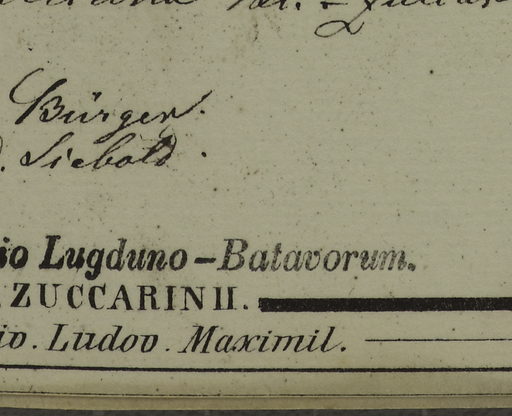 Bürger.
. Siebold.
io Lugduno-Batavorum.
. ZUCCARINII.
iv. Ludov. Maximil.